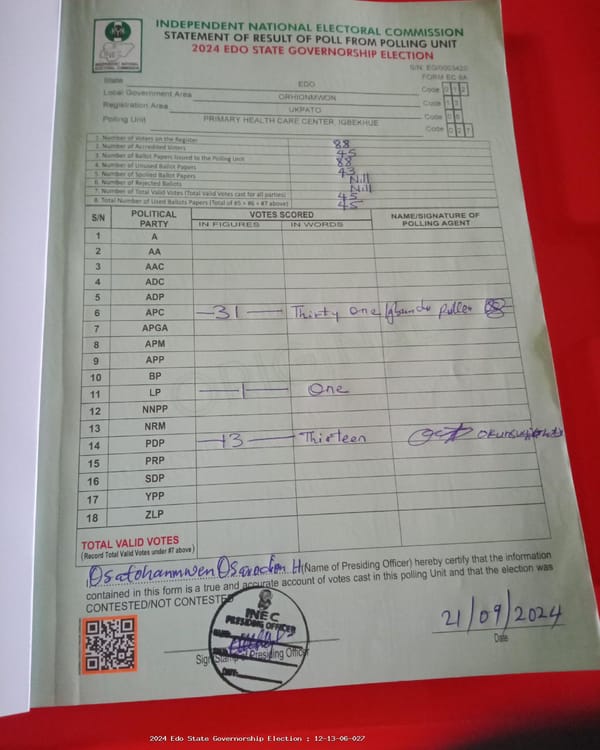 INDEPENDENT NATIONAL ELECTORAL COMMISSION
STATEMENT OF RESULT OF POLL FROM POLLING UNIT
2024 EDO STATE GOVERNORSHIP ELECTION
INDEPENDENT NATIONAL ELECTORAL COMMISSION
S/N: EG/0003420
FORM EC 8A
State EDO Code 0 1 2
Local Government Area ORHIONMWON Code 1 3
Registration Area UKPATO Code 0 6
Polling Unit PRIMARY HEALTH CARE CENTER, IGBEKHUE Code 0 2 7
1. Number of Voters on the Register 88
2. Number of Accredited Voters 45
3. Number of Ballot Papers Issued to the Polling Unit 88
4. Number of Unused Ballot Papers 43
5. Number of Spoiled Ballot Papers Nill
6. Number of Rejected Ballots Nill
7. Number of Total Valid Votes (Total Valid Votes cast for all parties) 45
8. Total Number of Used Ballots Papers (Total of #5 + #6 + #7 above) 45
S/N POLITICAL PARTY VOTES SCORED NAME/SIGNATURE OF POLLING AGENT
IN FIGURES IN WORDS
1 A
2 AA
3 AAC
4 ADC
5 ADP
6 APC 31 Thirty one
7 APGA
8 APM
9 APP
10 BP
11 LP 1 One
12 NNPP
13 NRM
14 PDP 13 Thirteen
15 PRP
16 SDP
17 YPP
18 ZLP
TOTAL VALID VOTES
(Record Total Valid Votes under #7 above)
Osatohanmwen H (Name of Presiding Officer) hereby certify that the information
contained in this form is a true and accurate account of votes cast in this polling Unit and that the election was
CONTESTED/NOT CONTESTED
INEC
PRESIDING OFFICER
21/09/2024
Sign Stamp of Presiding Officer
Date
2024 Edo State Governorship Election : 12-13-06-027